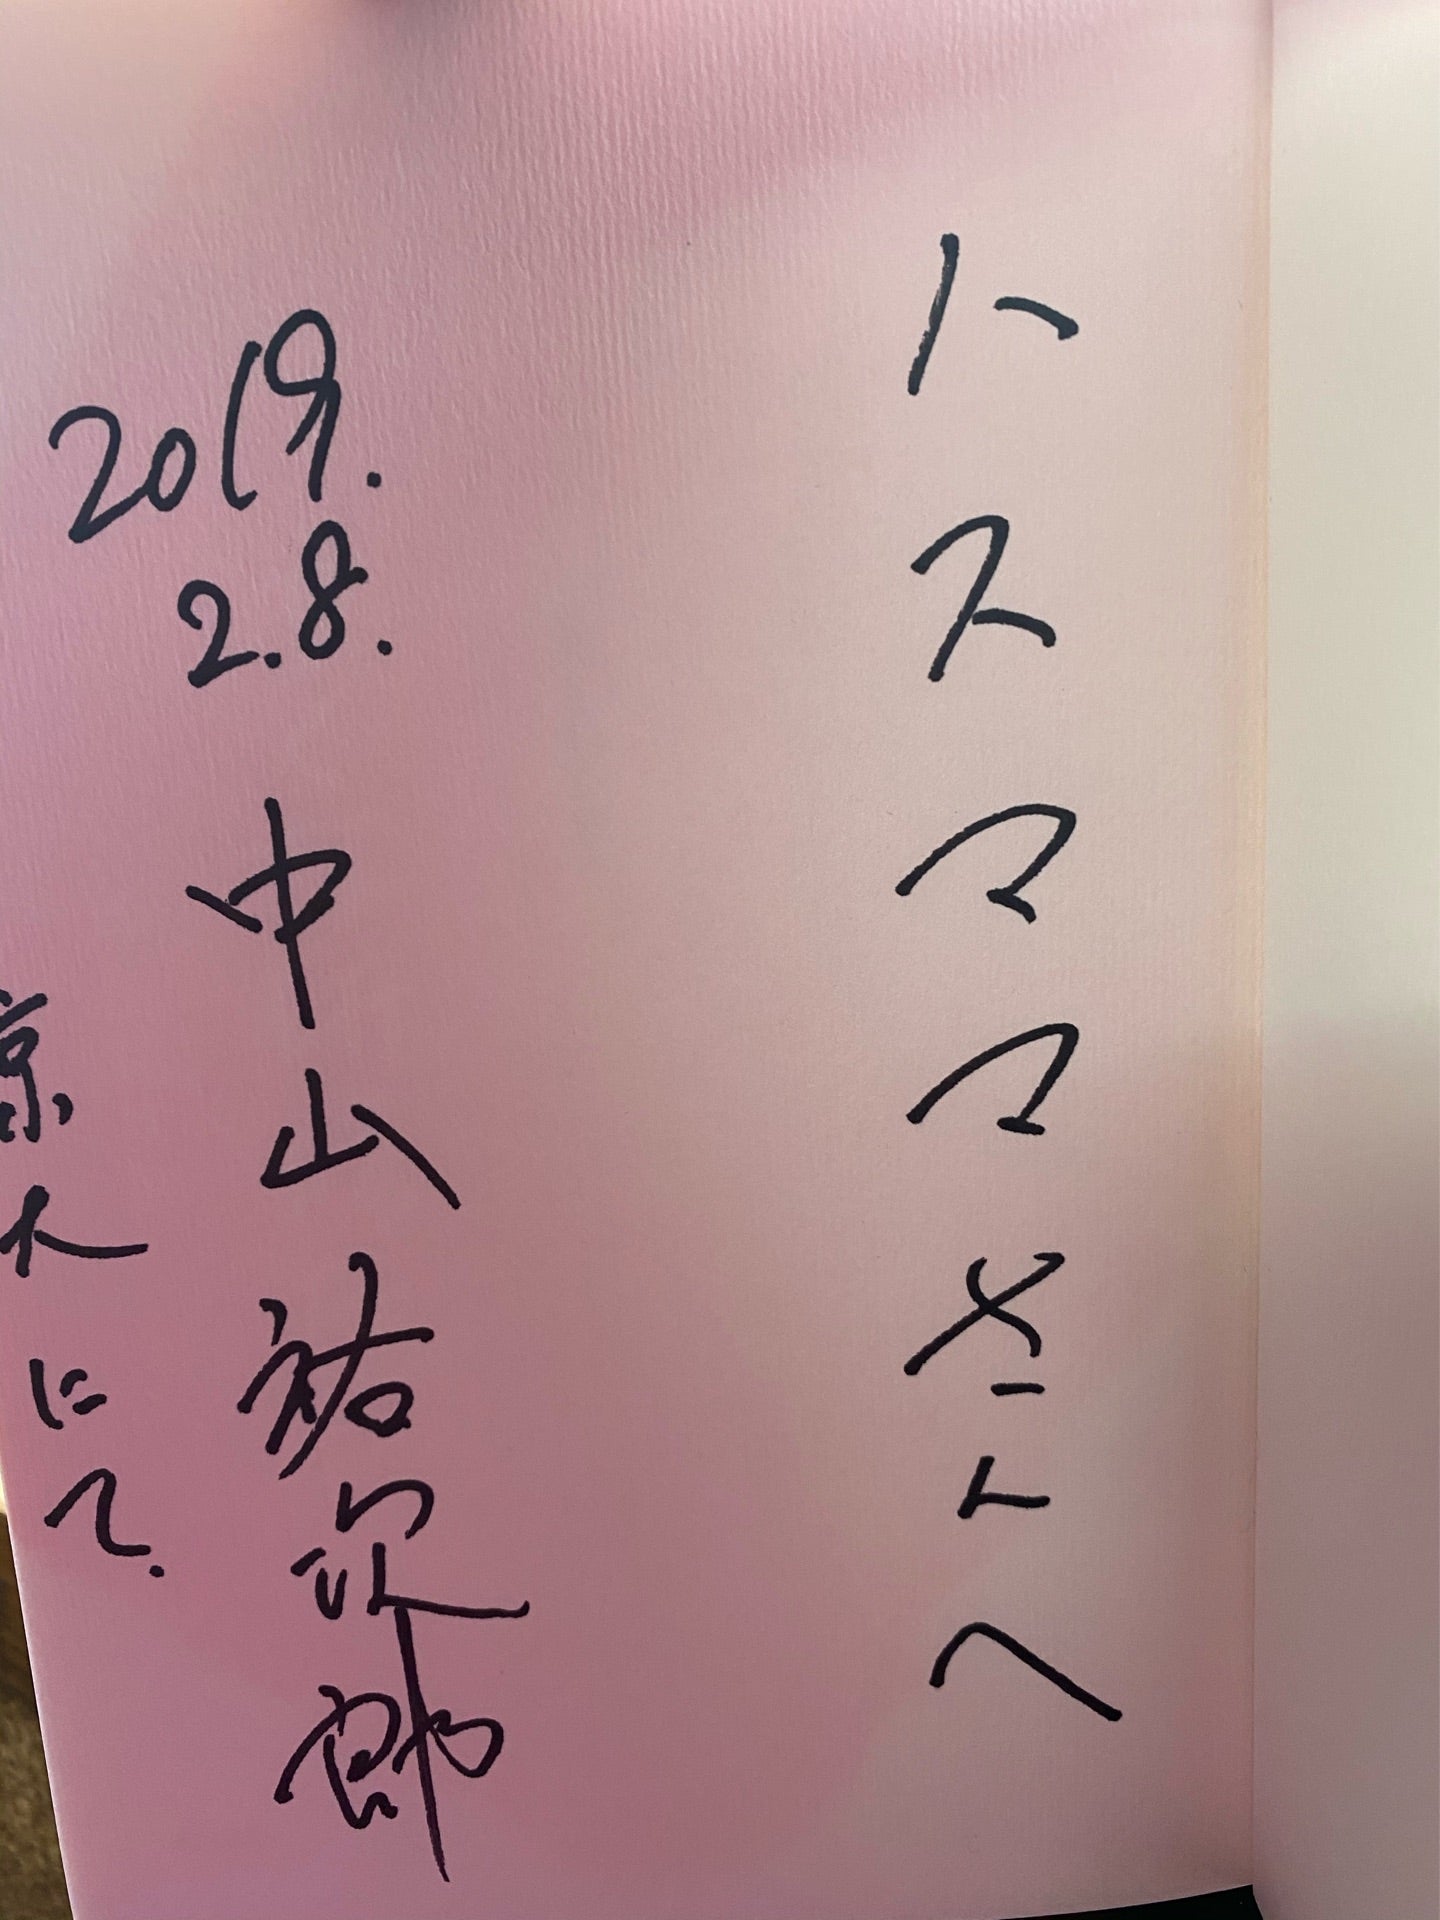 スママ
へ
2019.
2.8.
中山祐次郎
京大にて.